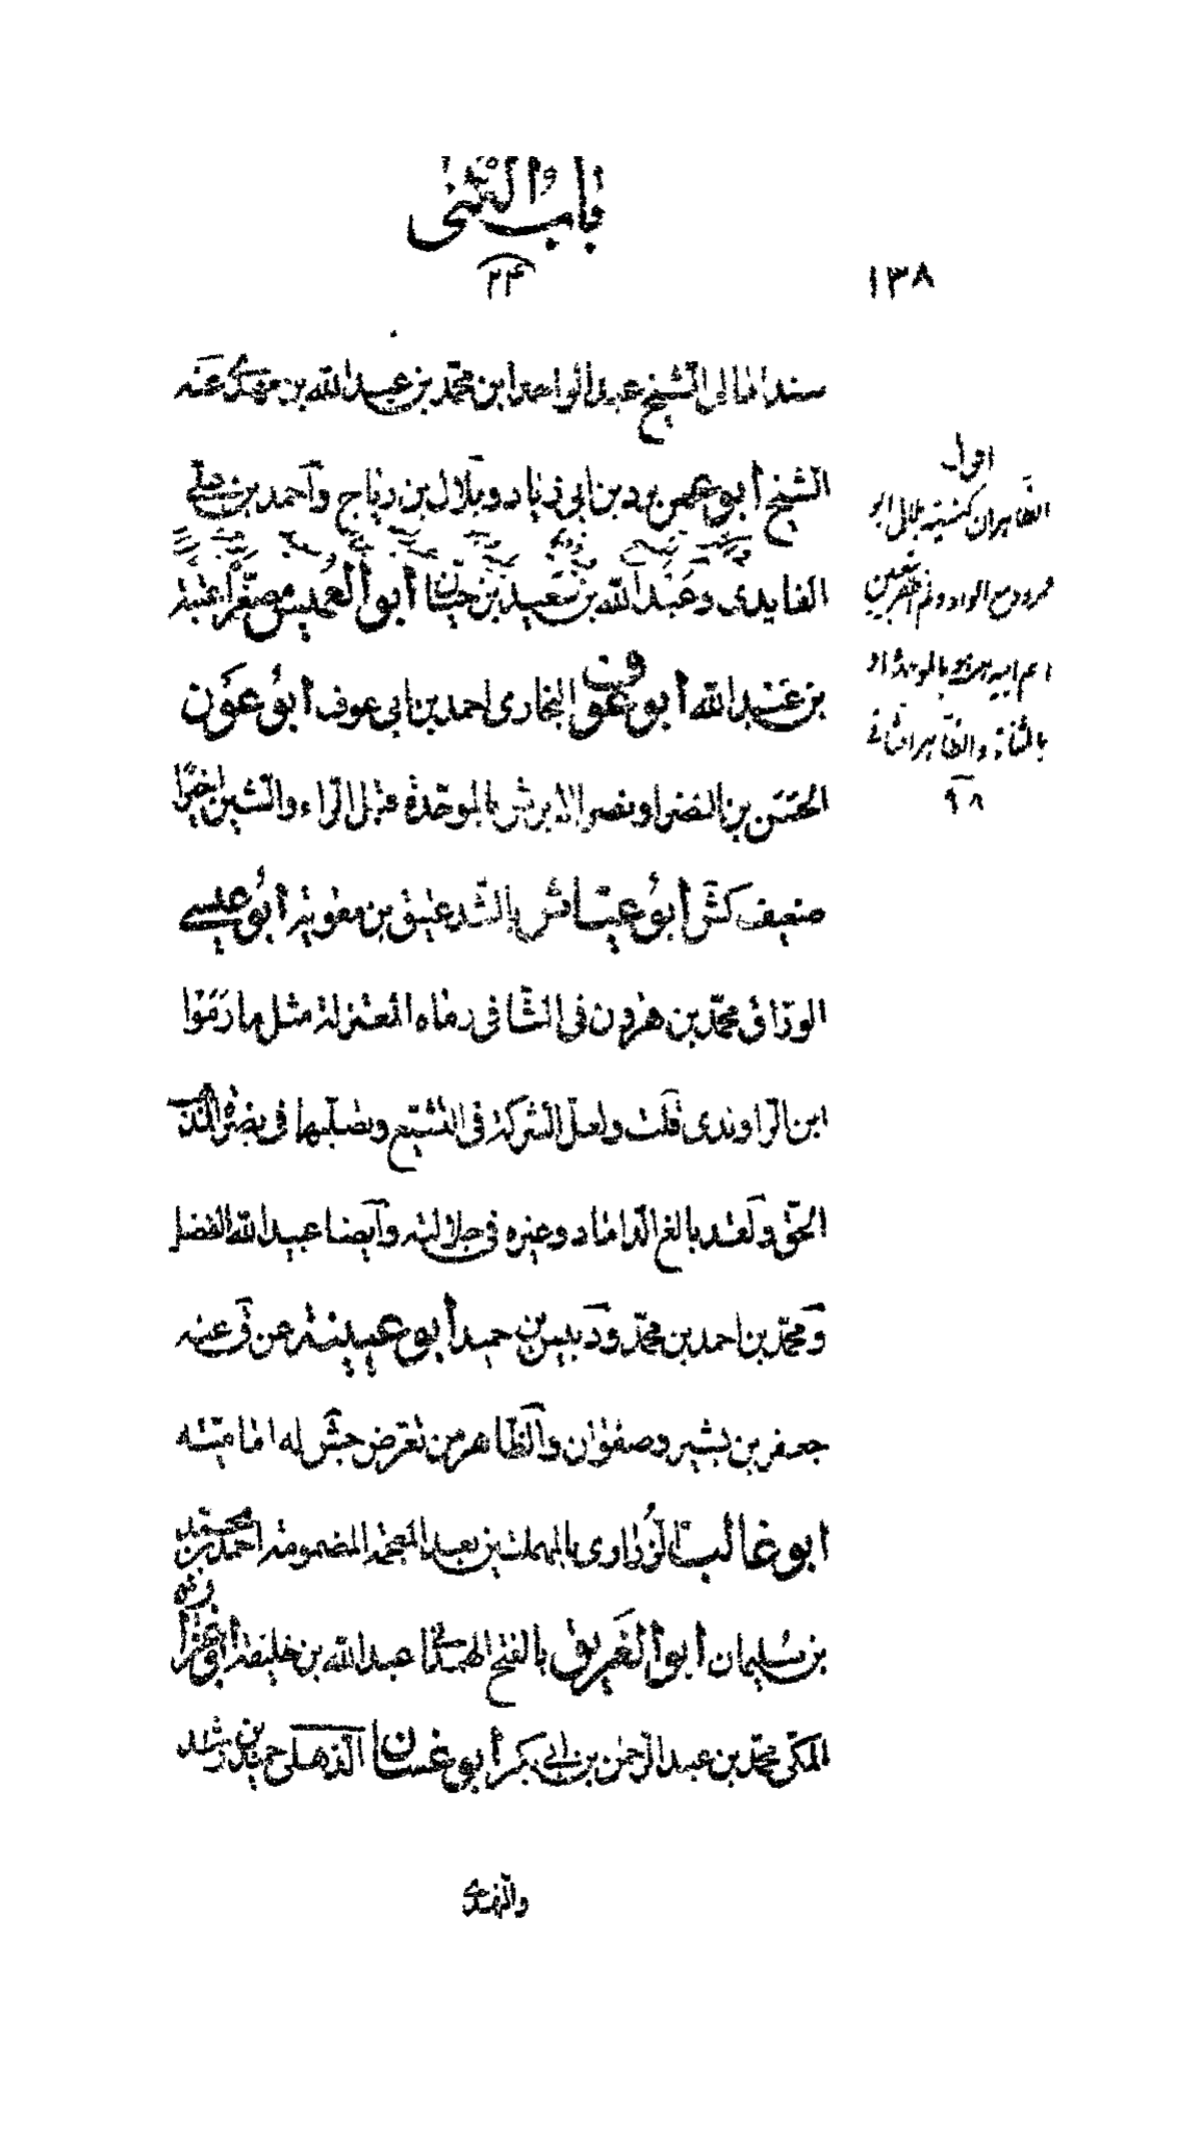 باب الكنى
٢٤
١٣٨
سند امالي الشيخ عبد الواحد ابن محمد بن عبد الله بن مهدي عنه
الشيخ أبو عمر بن أبي زياد وبلال بن رباح وأحمد بن علي
الفايدي وعبد الله بن سعيد بن حيان أبو العميس مصغرا عتبة
بن عبد الله أبو عوف البخاري احمد بن ابي عوف أبو عون
الحسن بن النضر او نصر الابرش بالموحدة قبل الراء والشين اخيرا
ضعيف كش أبو عياش بالشد عتيق بن معوية أبو عيسى
الوراق محمد بن هرون في الشافي رماه المعتزلة مثل ما رموا
ابن الراوندي قلت ولعل الشركة في التشيع وتصلبهما في نصرة
الحق ولقد بالغ الداماد وغيره في جلالته وأيضا عبيد الله الفضل
ومحمد بن احمد بن محمد ودبيس بن حميد أبو عيينة عن ق عنه
جعفر بن بشير وصفوان والظاهر من تعرض جش له اماميته
ابو غالب الزراري بالمهملتين بعد المعجمة المضمومة احمد بن محمد
بن سليمان أبو الغريف بالفتح الهمداني عبد الله بن خليفة أبو غرارة
المكي محمد بن عبد الرحمن بن أبي بكر أبو غسان الذهلي حميد بن راشد
والنهدي
اول
الظاهران كنيته بلال ابو
بالمثناة والظاهر
٩٨